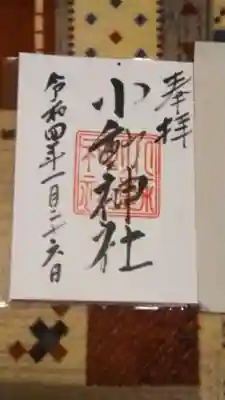 奉拝
小釣神社
令和四年一月二十六日